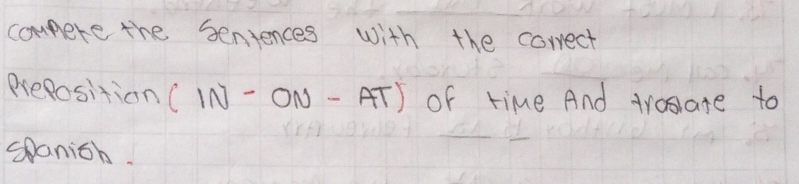 compete the Sentences with the correct
Preposition ( IN - ON - AT) of time And traslate to
Spanish.